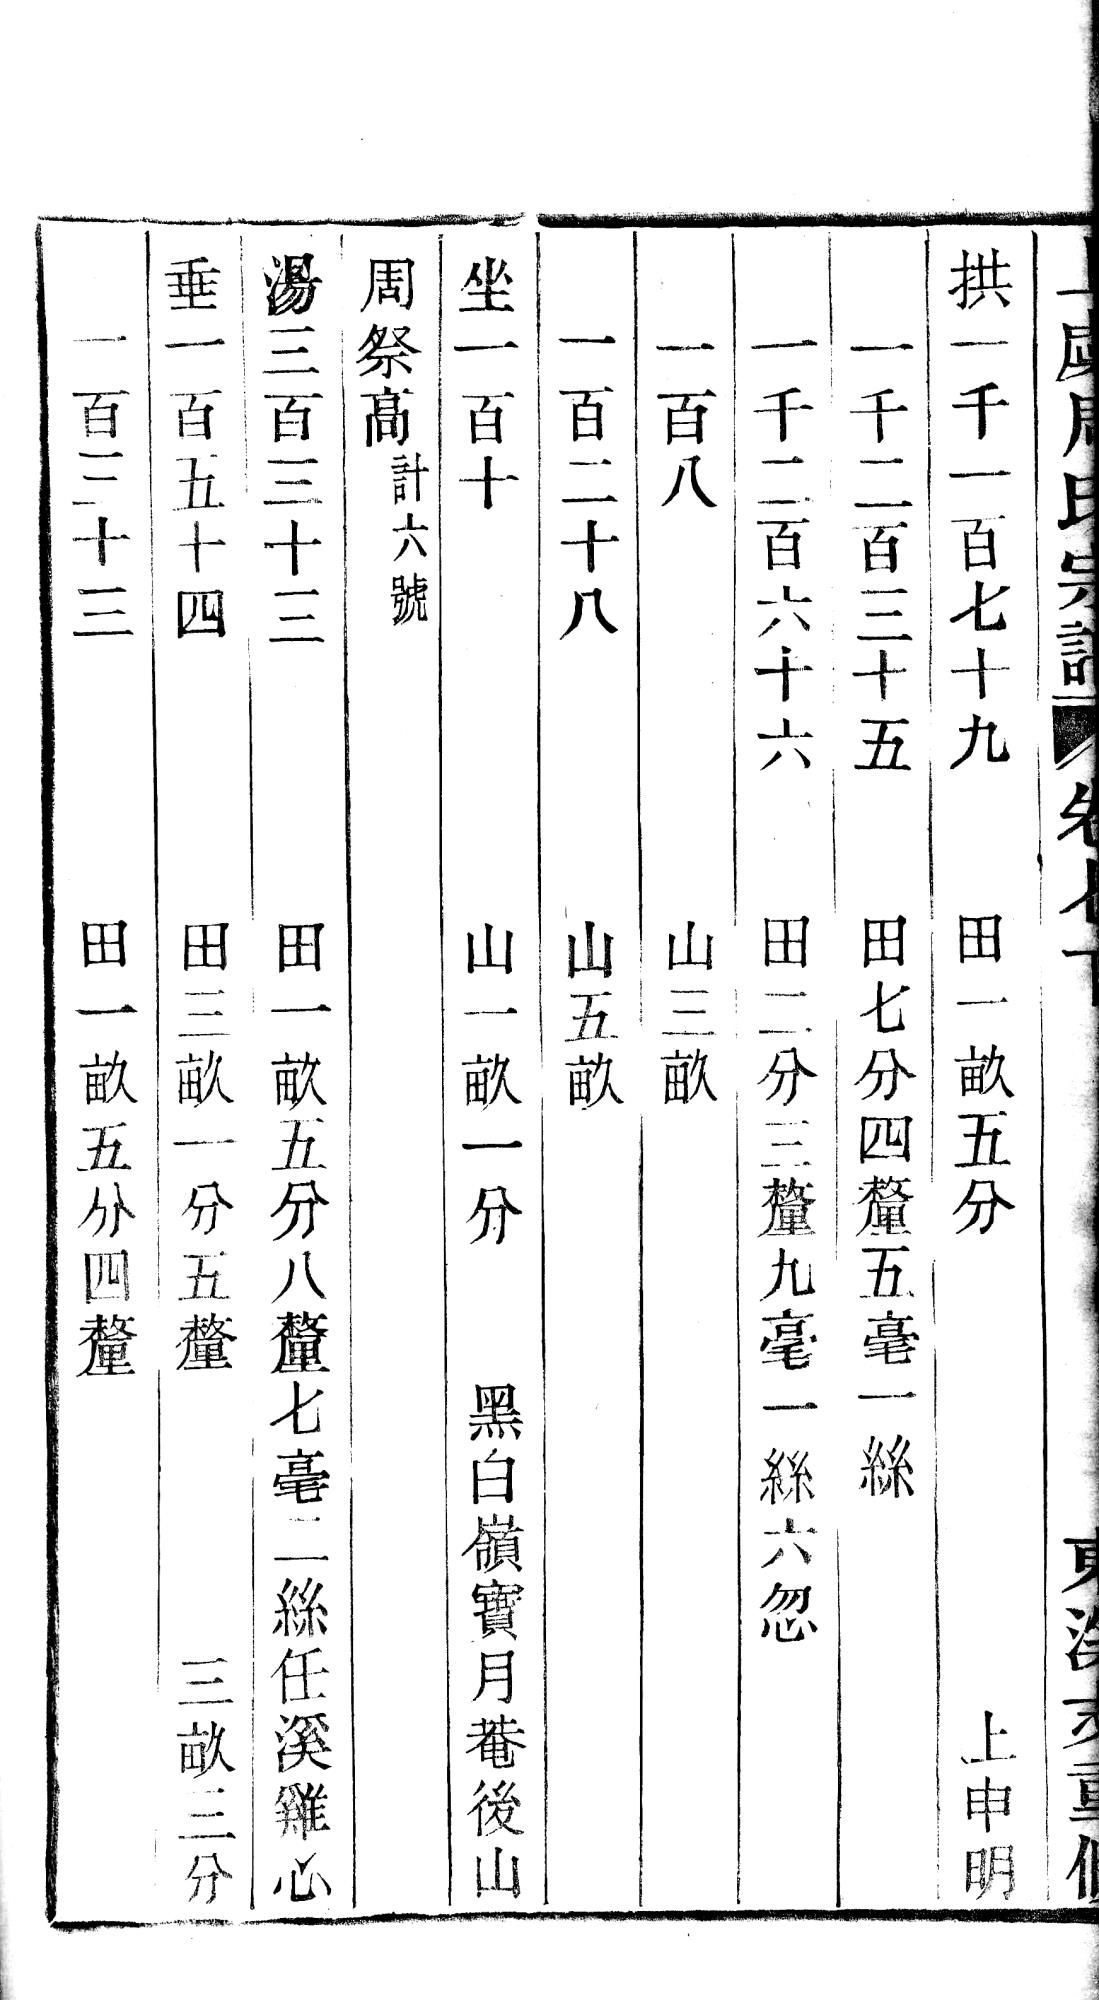 周氏宗譜 卷七十 重修
拱一千一百七十九 田一畝五分 上申明
一千二百三十五 田七分四釐五毫一絲
一千二百六十六 田二分三釐九毫一絲六忽
一百八 山三畝
一百二十八 山五畝
坐一百十 山一畝一分 黑白嶺寶月菴後山
周祭高計六號
湯三百三十三 田一畝五分八釐七毫二絲任溪雞心
垂一百五十四 田三畝一分五釐 三畝三分
一百三十三 田一畝五分四釐